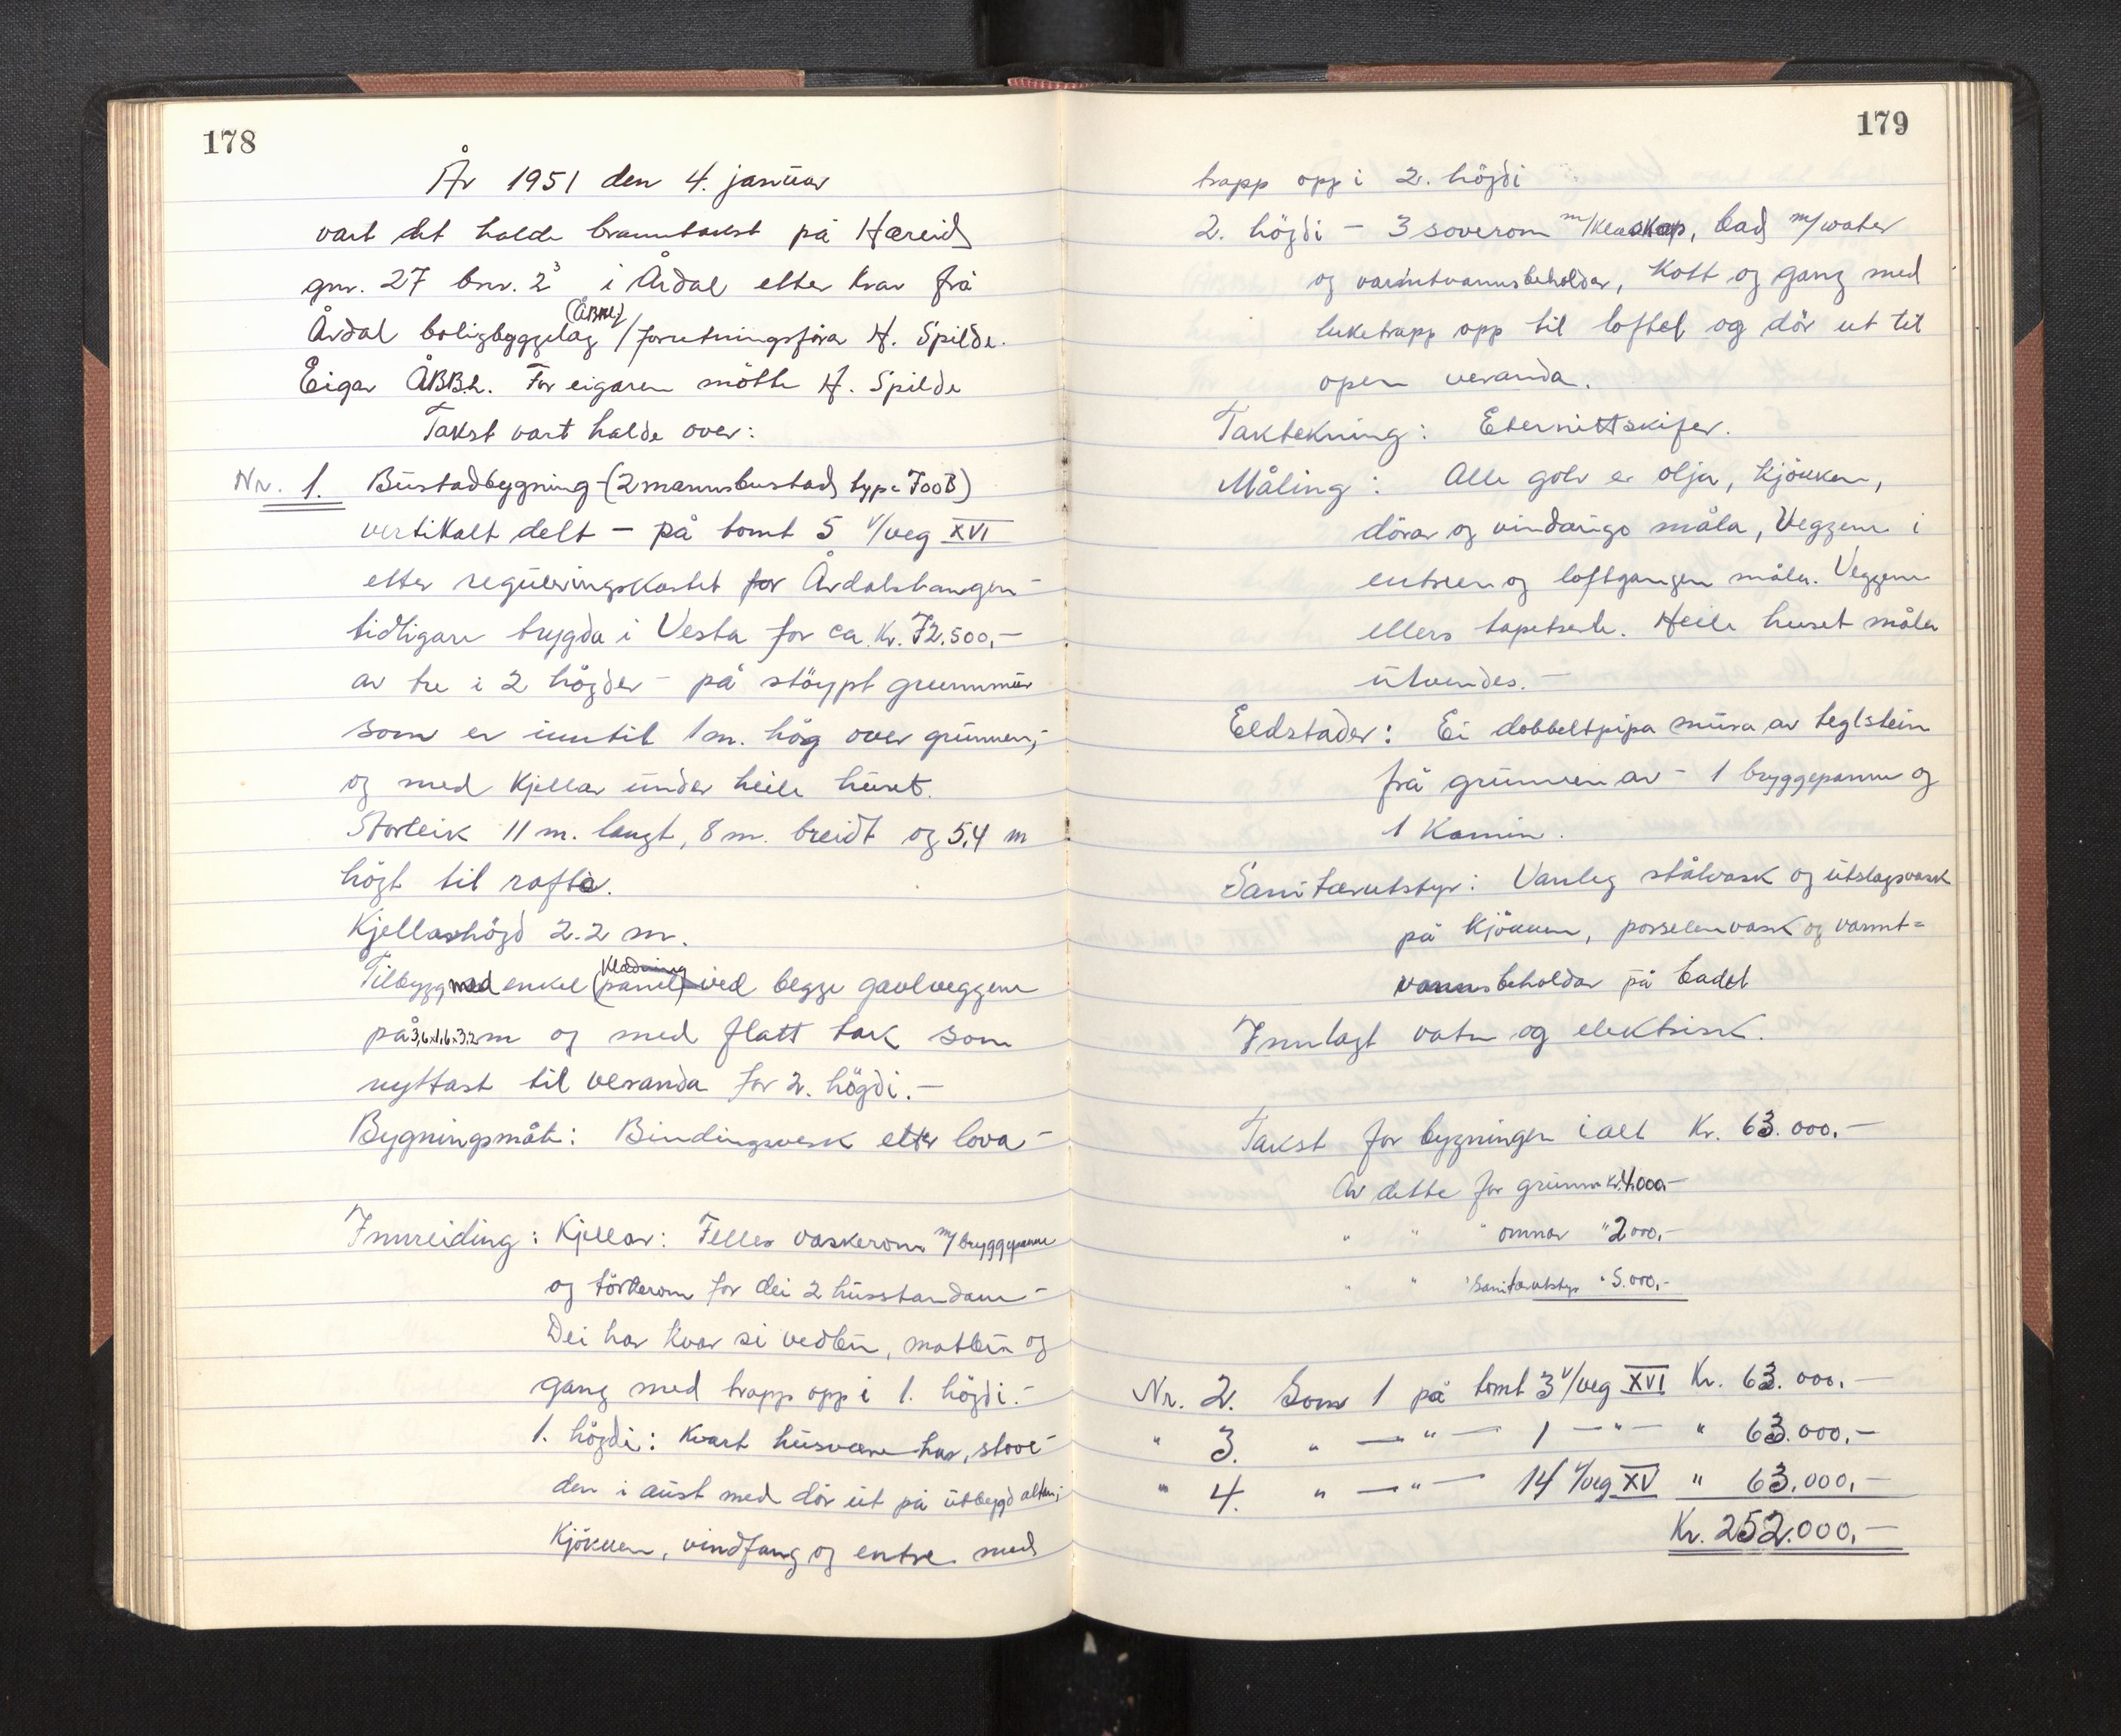 178
År 1951 den 4. januar
vart det halde branntakst på Hæreid
gnr. 27 bnr. 2³ i Årdal etter krav frå
(ÅBBL)
Årdal boligbyggelag / forretningsførar H. Spilde.
Eigar ÅBBL. For eigaren møtte H. Spilde
Takst vart halde over:
Nr. 1. Bustadbygning - (2 mannsbustad type 700B)
vertikalt delt - på tomt 5 v/veg XVI
etter reguleringskartet for Årdalstangen -
tidligare trygda i Vesta for ca. Kr. 72.500,-
av tre i 2 høgder - på støypt grunnmur
som er inntil 1 m. høg over grunnen,-
og med kjellar under heile huset.
Storleik 11 m. langt, 8 m. breidt og 5,4 m
høgt til raftė.
Kjellarhögd 2.2 m.
Klædning
Tilbygg med enkel (panel) ved begge gavlveggene
på 3,6x1,6x3,2 m og med flatt tak som
nyttast til veranda for 2. högdi.-
Bygningsmåte: Bindingsverk etter lova -
Innreiding: Kjellar: Felles vaskerom m/bryggepanne
og törkerom for dei 2 husstandane -
Dei har kvar si vedbu, matbu og
gang med trapp opp i 1. högdi.-
1. högdi: Kvart husvære har, stove -
den i aust med dör ut på utbygd altan;
Kjökken, vindfang og entre med
179
trapp opp i 2. högdi
2. högdi - 3 soverom m/kleskap, bad m/water
og varmtvannsbeholdar, kott og gang med
luketrapp opp til loftet og dör ut til
open veranda.
Taktekning: Eternittskifer.
Måling: Alle golv er olja, kjökken,
dörar og vindaugo måla, Veggene i
entreen og loftgangen måla. Veggene
ellers tapetserte. Heile huset måla
utvendes.-
Eldstader: Ei dobbeltpipa mura av teglstein
frå grunnen av - 1 bryggepanne og
1 Kamin.
Sanitærutstyr: Vanleg stålvask og utslagsvask
på kjökken, porselenvask og varmt=
vannsbeholdar på badet
Innlagt vatn og elektrisk.
Takst for bygningen ialt Kr. 63.000.-
Av dette for grunn Kr. 4.000-
" " " omnar " 2000,-
" " " Sanitærutstyr " 5.000,-
Nr. 2. Som 1 på tomt 3 v/veg XVI Kr. 63.000.-
" 3. " — " — 1 — " — " 63.000,-
" 4. " — " — 14 v/veg XV " 63.000,-
Kr. 252.000,-